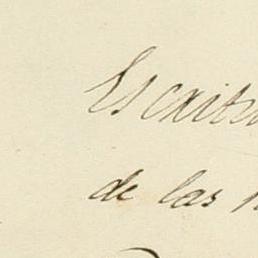 Escritu
de las